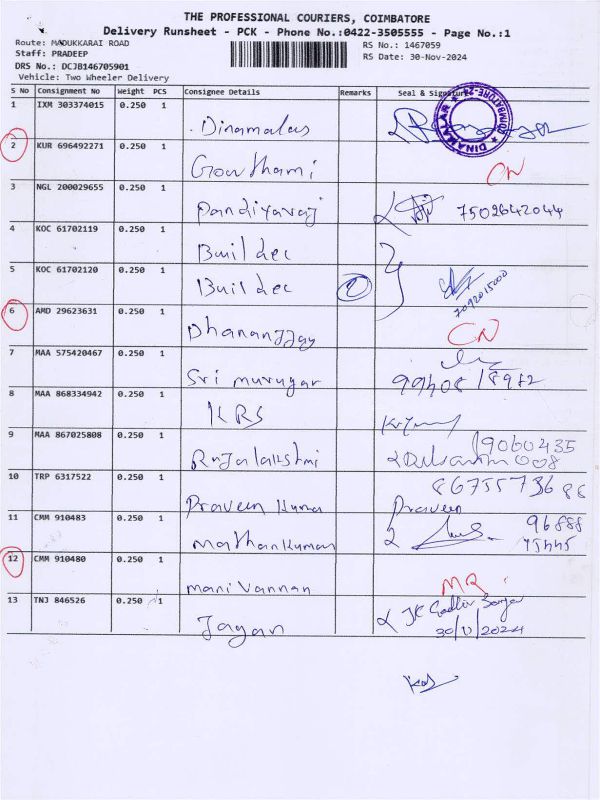 THE PROFESSIONAL COURIERS, COIMBATORE
Delivery Runsheet - PCK - Phone No.:0422-3505555 - Page No.:1
Route: MADUKKARAI ROAD
RS No.: 1467059
Staff: PRADEEP
RS Date: 30-Nov-2024
DRS No.: DCJB146705901
Vehicle: Two Wheeler Delivery
S No Consignment No Weight PCS Consignee Details Remarks Seal & Signature
1 IXM 303374015 0.250 1 Dinamalar
DINAMALAR COIMBATORE-24
2 KUR 696492271 0.250 1 Gowthami CN
3 NGL 200029655 0.250 1 Pandiyaraj 7502642044
4 KOC 61702119 0.250 1 Buildec
5 KOC 61702120 0.250 1 Buildec 2 7092015000
6 AMD 29623631 0.250 1 Dhananjjay CN
7 MAA 575420467 0.250 1 Sri murugar 99408/8982
8 MAA 868334942 0.250 1 KRS
9 MAA 867025808 0.250 1 Rajalakshmi 9060435
008
10 TRP 6317522 0.250 1 Praveen Kumar Praveen 86755736 86
11 CMM 910483 0.250 1 Mathankumar 96888
75445
12 CMM 910480 0.250 1 manivannan MR
13 TNJ 846526 0.250 1 Jagan JK
30/11/2024